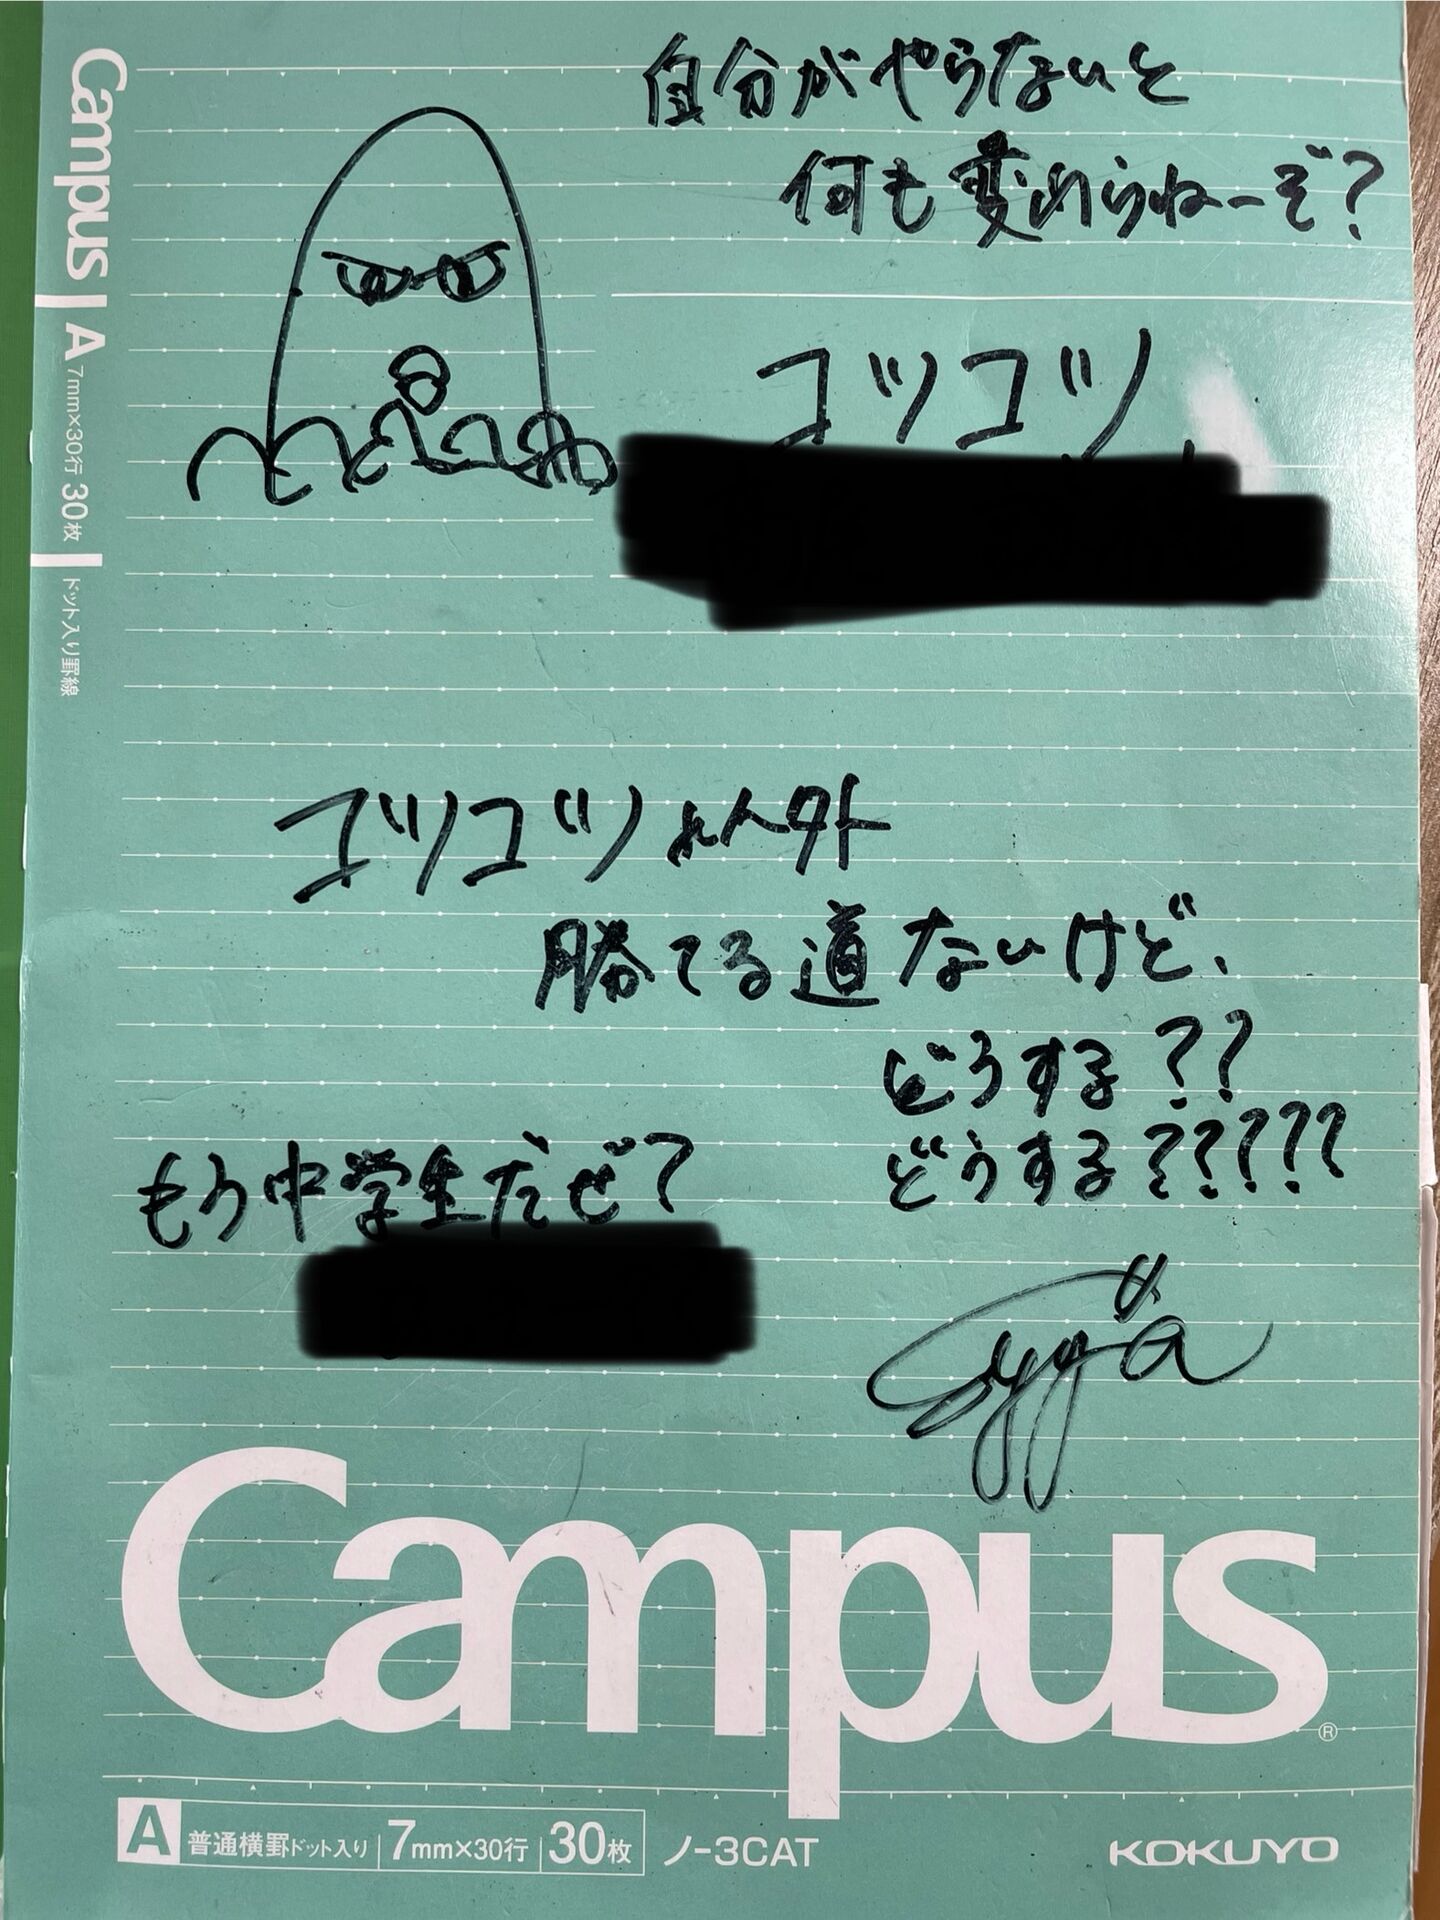 自分がやらないと
何も変わらねーぞ?
コツコツ、
コツコツ以外
勝てる道ないけど、
どうする??
どうする?????
もう中学生だぜ?
Campus
A 普通横罫ドット入り 7mm×30行 30枚 ノ-3CAT
KOKUYO
Campus A 7mm×30行 30枚 ドット入り罫線